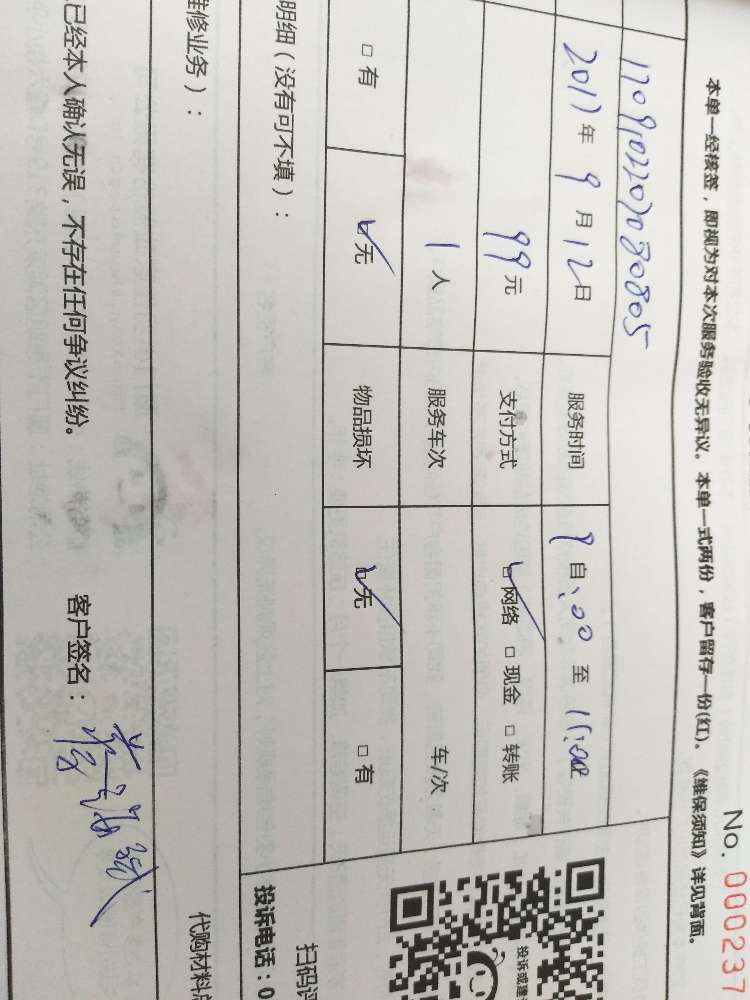 No. 000237
本单一经核签，即视为对本次服务验收无异议。本单一式两份，客户留存一份(红)。《维保须知》详见背面。
2017年9月12日 服务时间 自9:00 至
99元 支付方式 ☑网络 □现金 □转账
1人 服务车次 车/次
□有 ☑无 物品损坏 ☑无 □有
明细（没有可不填）：
投诉或建
扫码评
投诉电话：0
修业务）：
代购材料总
已经本人确认无误，不存在任何争议纠纷。 客户签名：